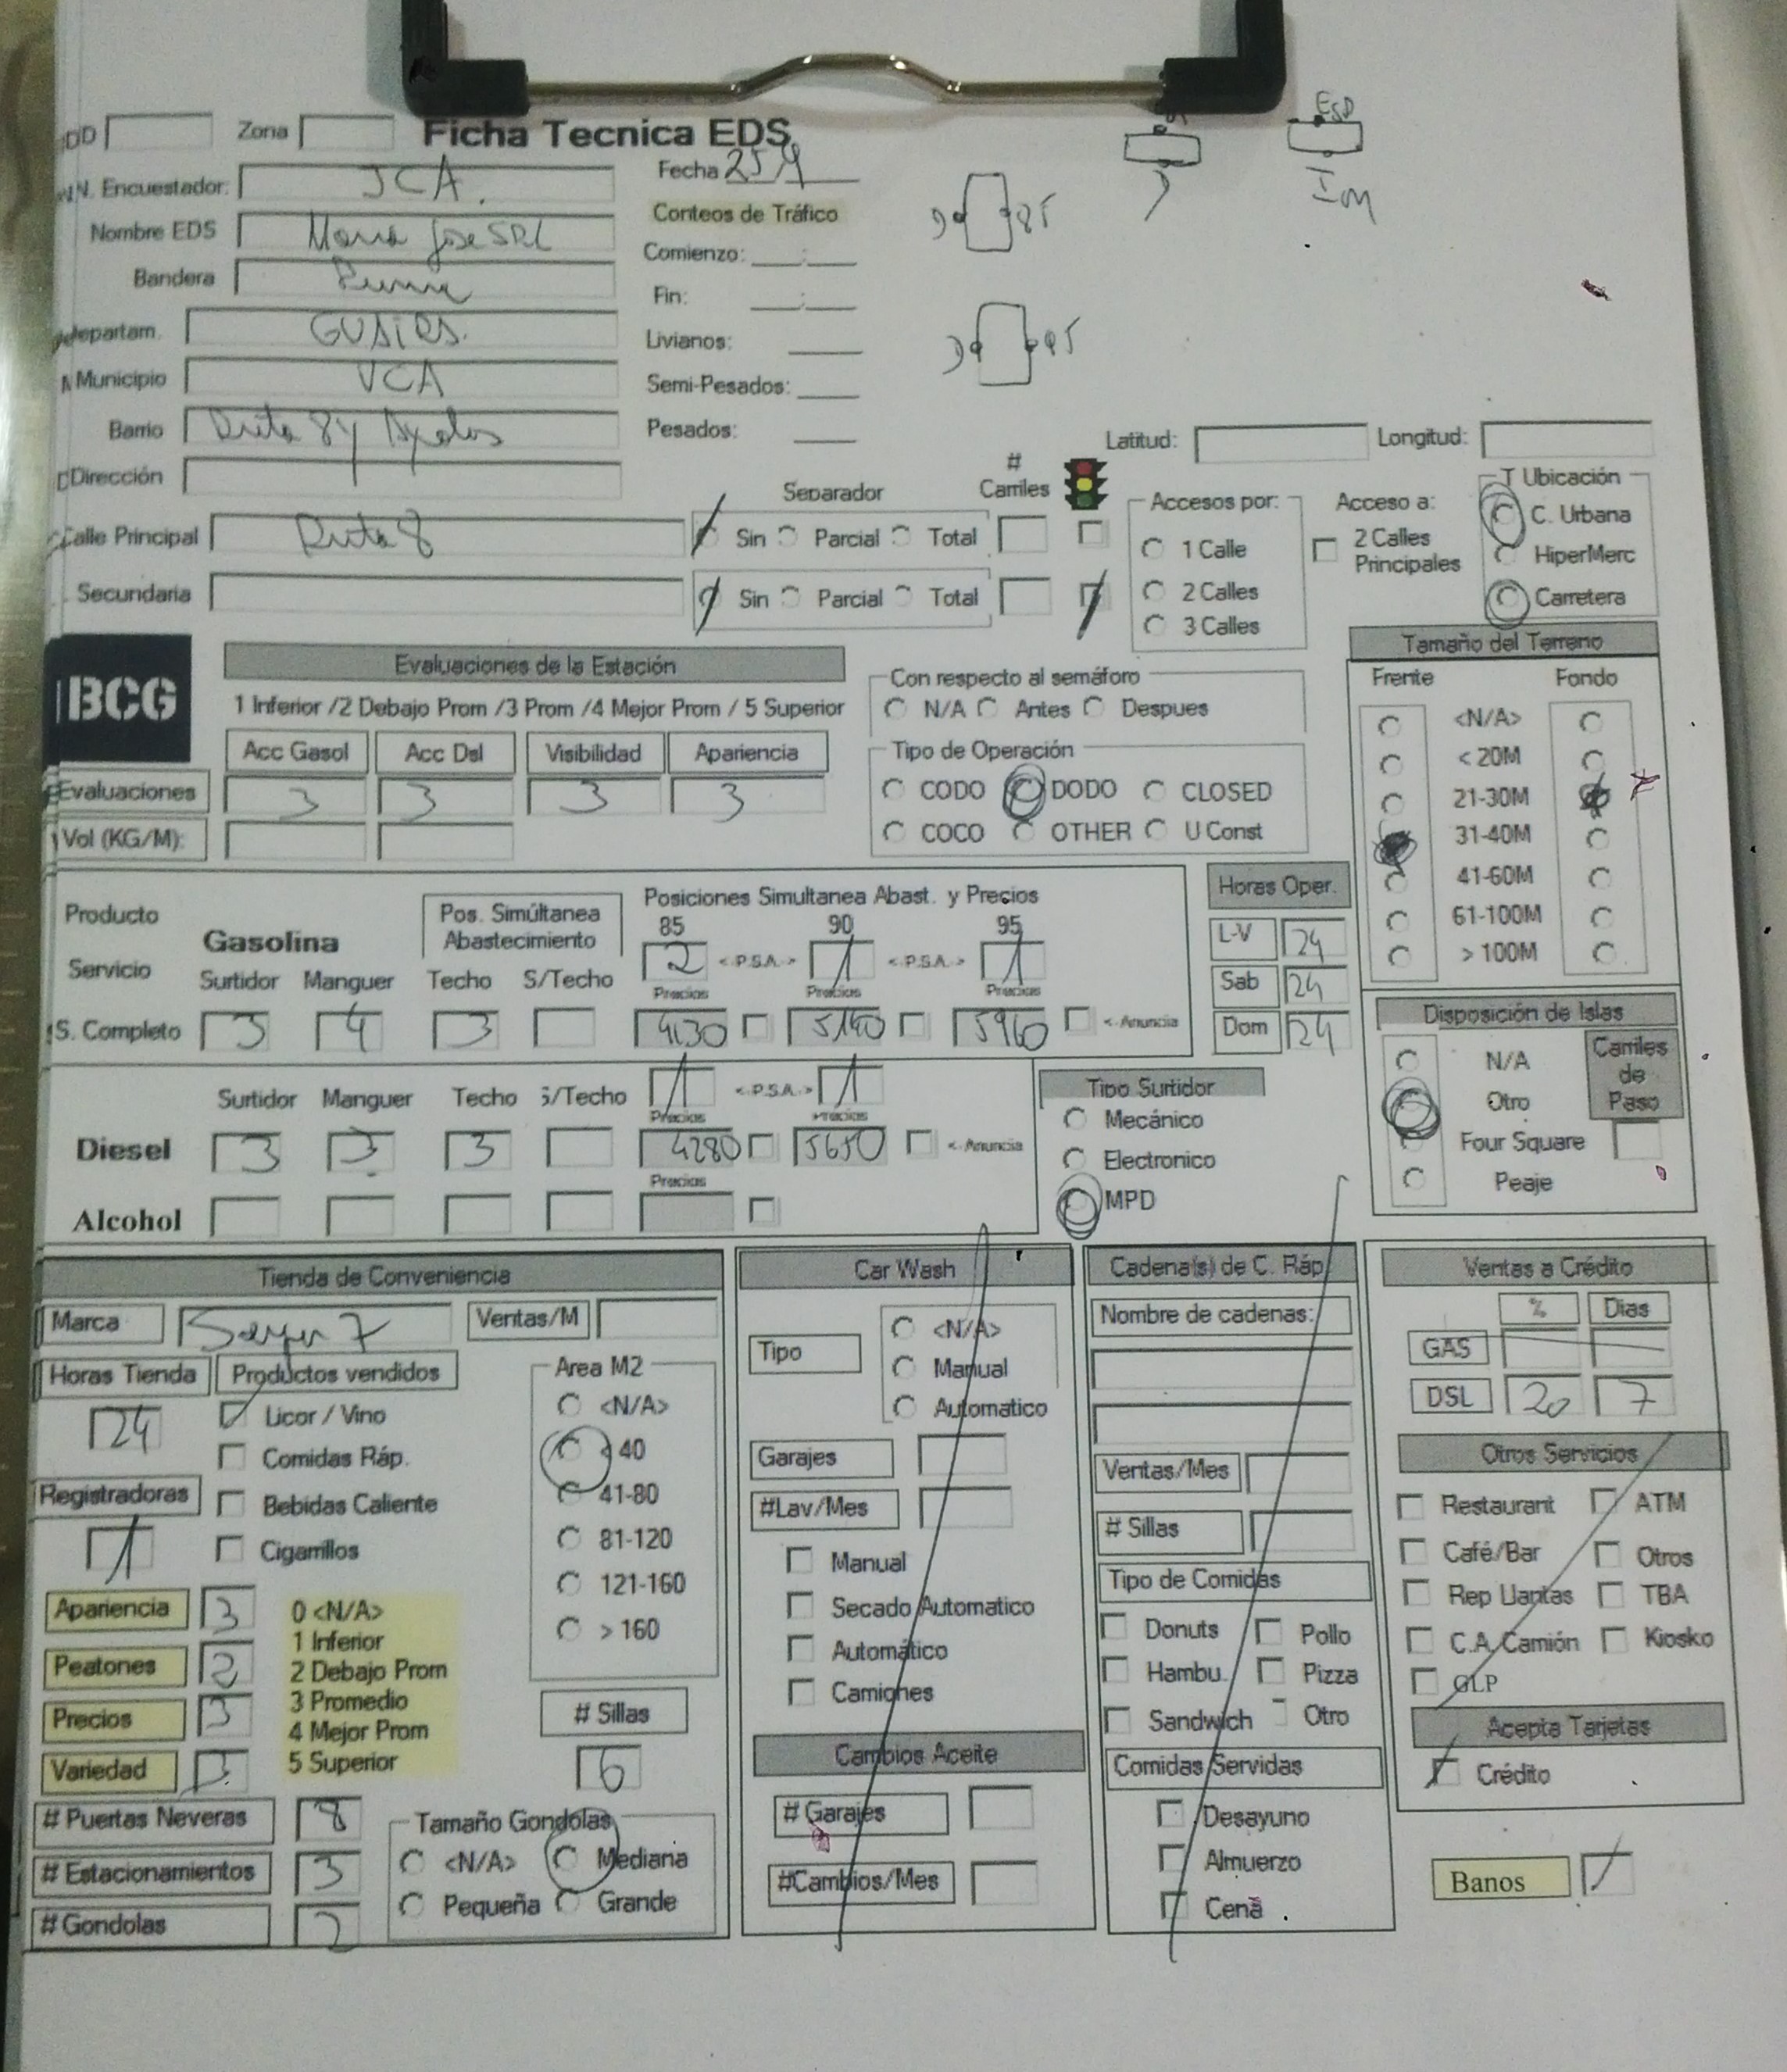 DD Zona Ficha Tecnica EDS
N. Encuestador: JCA. Fecha 25 4
Nombre EDS Maria Jose SRL Conteos de Tráfico
Comienzo: __:__
Bandera Puma
Fin: __:__
Departam. GUAIRS. Livianos:
Municipio VCA Semi-Pesados:
Barrio Ruta 8 y Ayolas Pesados:
Dirección
ESD
D
IM
D 85
D 95
Latitud: Longitud:
Separador # Carriles
Calle Principal Ruta 8 Sin Parcial Total
Secundaria Sin Parcial Total
Accesos por:
1 Calle
2 Calles
3 Calles
Acceso a:
2 Calles
Principales
T Ubicación
C. Urbana
HiperMerc
Carretera
BCG
Evaluaciones de la Estación
1 Inferior /2 Debajo Prom /3 Prom /4 Mejor Prom / 5 Superior
Acc Gasol Acc Dsl Visibilidad Apariencia
Evaluaciones 3 3 3 3
Vol (KG/M):
Con respecto al semáforo
N/A Antes Despues
Tipo de Operación
CODO DODO CLOSED
COCO OTHER U Const
Tamaño del Terreno
Frente Fondo
<N/A>
< 20M
21-30M
31-40M
41-60M
61-100M
> 100M
Producto Pos. Simúltanea Abastecimiento Posiciones Simultanea Abast. y Precios
Gasolina 85 90 95
Servicio 2 <-P.S.A.-> 1 <-P.S.A.-> 1
Surtidor Manguer Techo S/Techo Precios Precios Precios
S. Completo 3 4 3 4130 5140 5960 <-Anuncia
Horas Oper.
L-V 24
Sab 24
Dom 24
Surtidor Manguer Techo S/Techo 1 <-P.S.A.-> 1
Precios Precios
Diesel 3 3 3 4280 5650 <-Anuncia
Precios
Alcohol
Tipo Surtidor
Mecánico
Electronico
MPD
Disposición de Islas
N/A
Otro
Four Square
Peaje
Carriles
de
Paso
Tienda de Conveniencia
Marca 7 Ventas/M
Horas Tienda Productos vendidos
24 Licor / Vino
Comidas Ráp.
Registradoras Bebidas Caliente
1 Cigarrillos
Area M2
<N/A>
< 40
41-80
81-120
121-160
> 160
Apariencia 3
Peatones 2
Precios 3
Variedad 3
0 <N/A>
1 Inferior
2 Debajo Prom
3 Promedio
4 Mejor Prom
5 Superior
# Sillas
6
# Puertas Neveras 8
# Estacionamientos 3
# Gondolas 2
Tamaño Gondolas
<N/A> Mediana
Pequeña Grande
Car Wash
Tipo
<N/A>
Manual
Automatico
Garajes
#Lav/Mes
Manual
Secado Automatico
Automático
Camiones
Cambios Aceite
# Garajes
#Cambios/Mes
Cadena(s) de C. Ráp
Nombre de cadenas:
Ventas/Mes
# Sillas
Tipo de Comidas
Donuts Pollo
Hambu. Pizza
Sandwich Otro
Comidas Servidas
Desayuno
Almuerzo
Cena
Ventas a Crédito
% Dias
GAS
DSL 20 7
Otros Servicios
Restaurant ATM
Café/Bar Otros
Rep Llantas TBA
C.A.Camión Kiosko
GLP
Acepta Tarjetas
Crédito
Banos